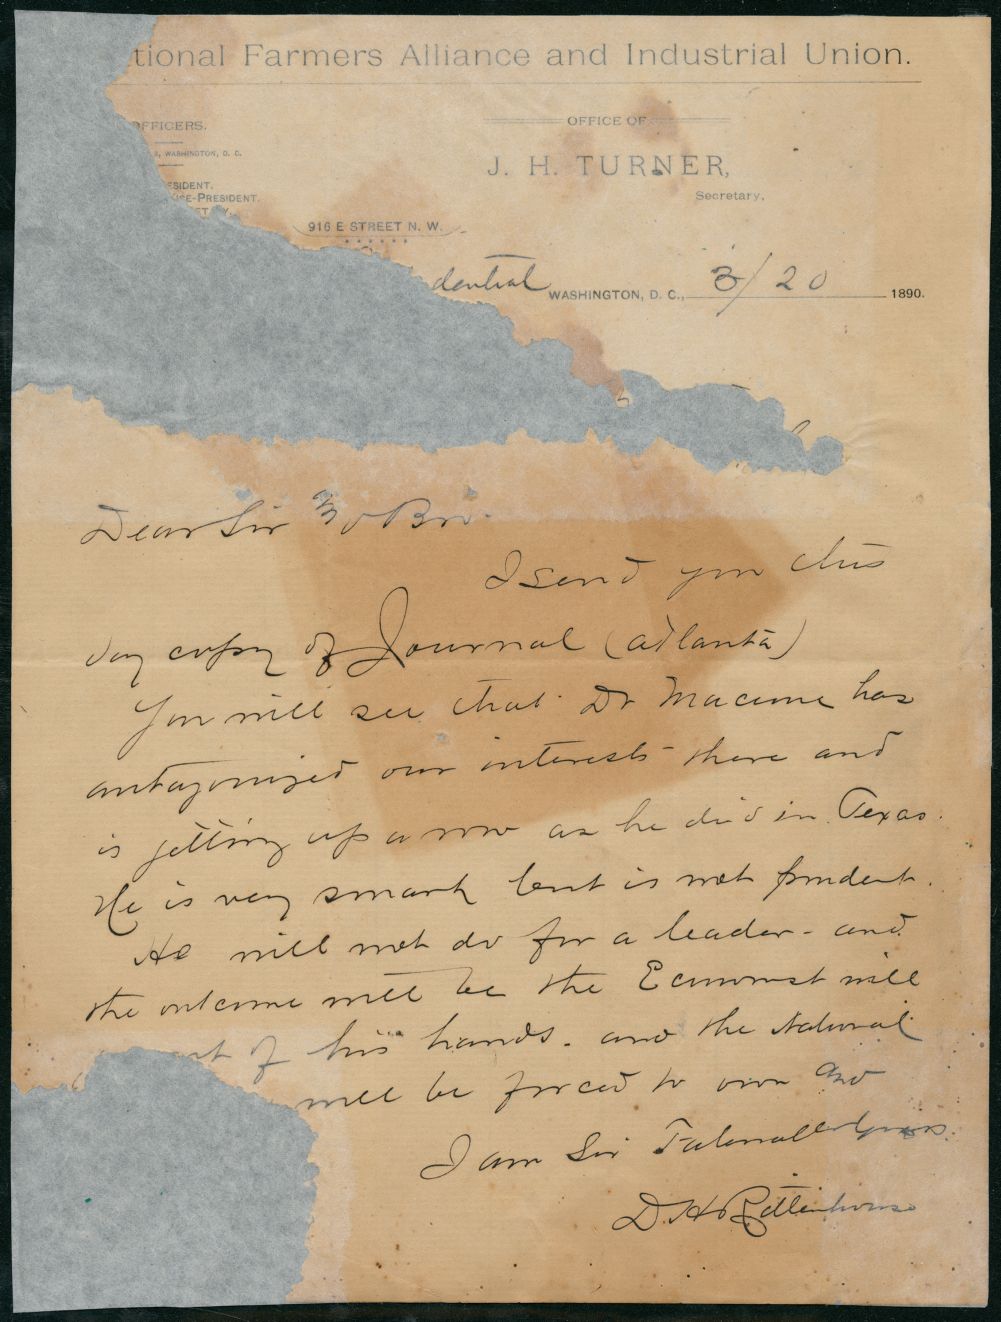 tional Farmers Alliance and Industrial Union.
OFFICERS.
WASHINGTON, D. C.
ESIDENT.
ICE-PRESIDENT.
OFFICE OF
J. H. TURNER,
Secretary,
916 E STREET N. W.
dential WASHINGTON, D. C., 3/20 1890.
Dear Sir & Bro.
I send you this
day copy of Journal (Atlanta)
You will see that Dr Macune has
antagonized our interests there and
is getting up a row as he did in Texas.
He is very smart but is not prudent.
He will not do for a leader - and
the outcome will be the Economist will
of his hands. and the National
will be forced to own
I am Sir Fraternally Yours.
D. H. Rittenhouse